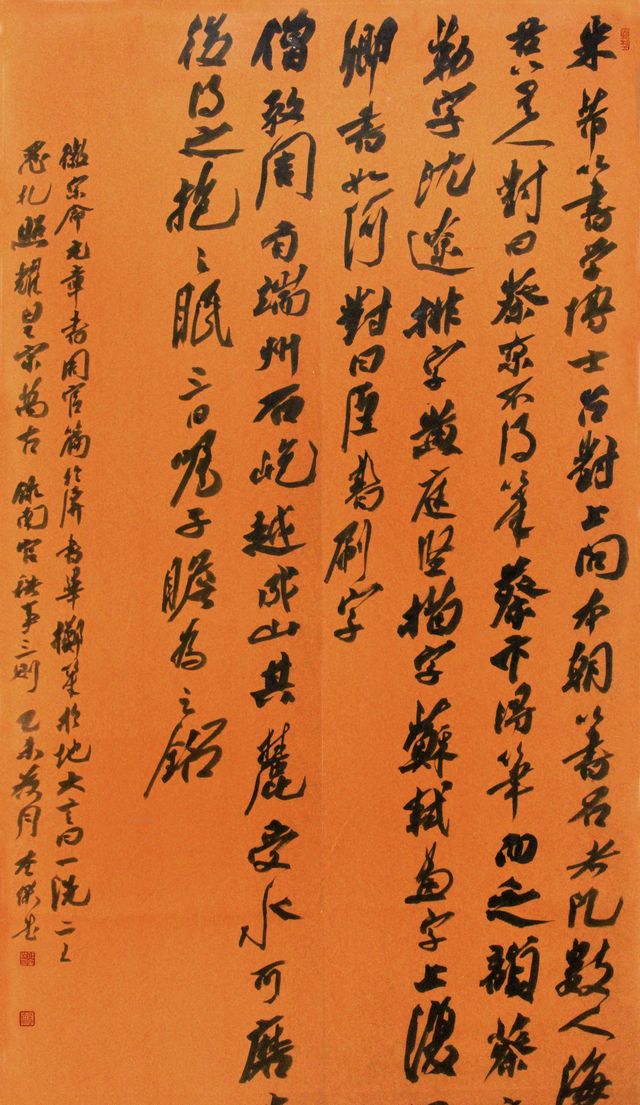 米芾以書学博士召對上问本朝以書名者凡數人海
以其人對曰蔡京不得筆蔡卞得筆而乏韻蔡
勒字沈遼排字黄庭坚描字蘇軾畫字上復
卿書如何對曰臣書刷字
僧教周有端州石屹越成山其麓受水可磨
後得之抱之眠三日嘱子瞻為之銘
徽宗命元章書周官篇於屏書畢擲筆於地大言曰一洗二王
惡札照耀皇宋萬古 錄南宮軼事三則 乙未荷月